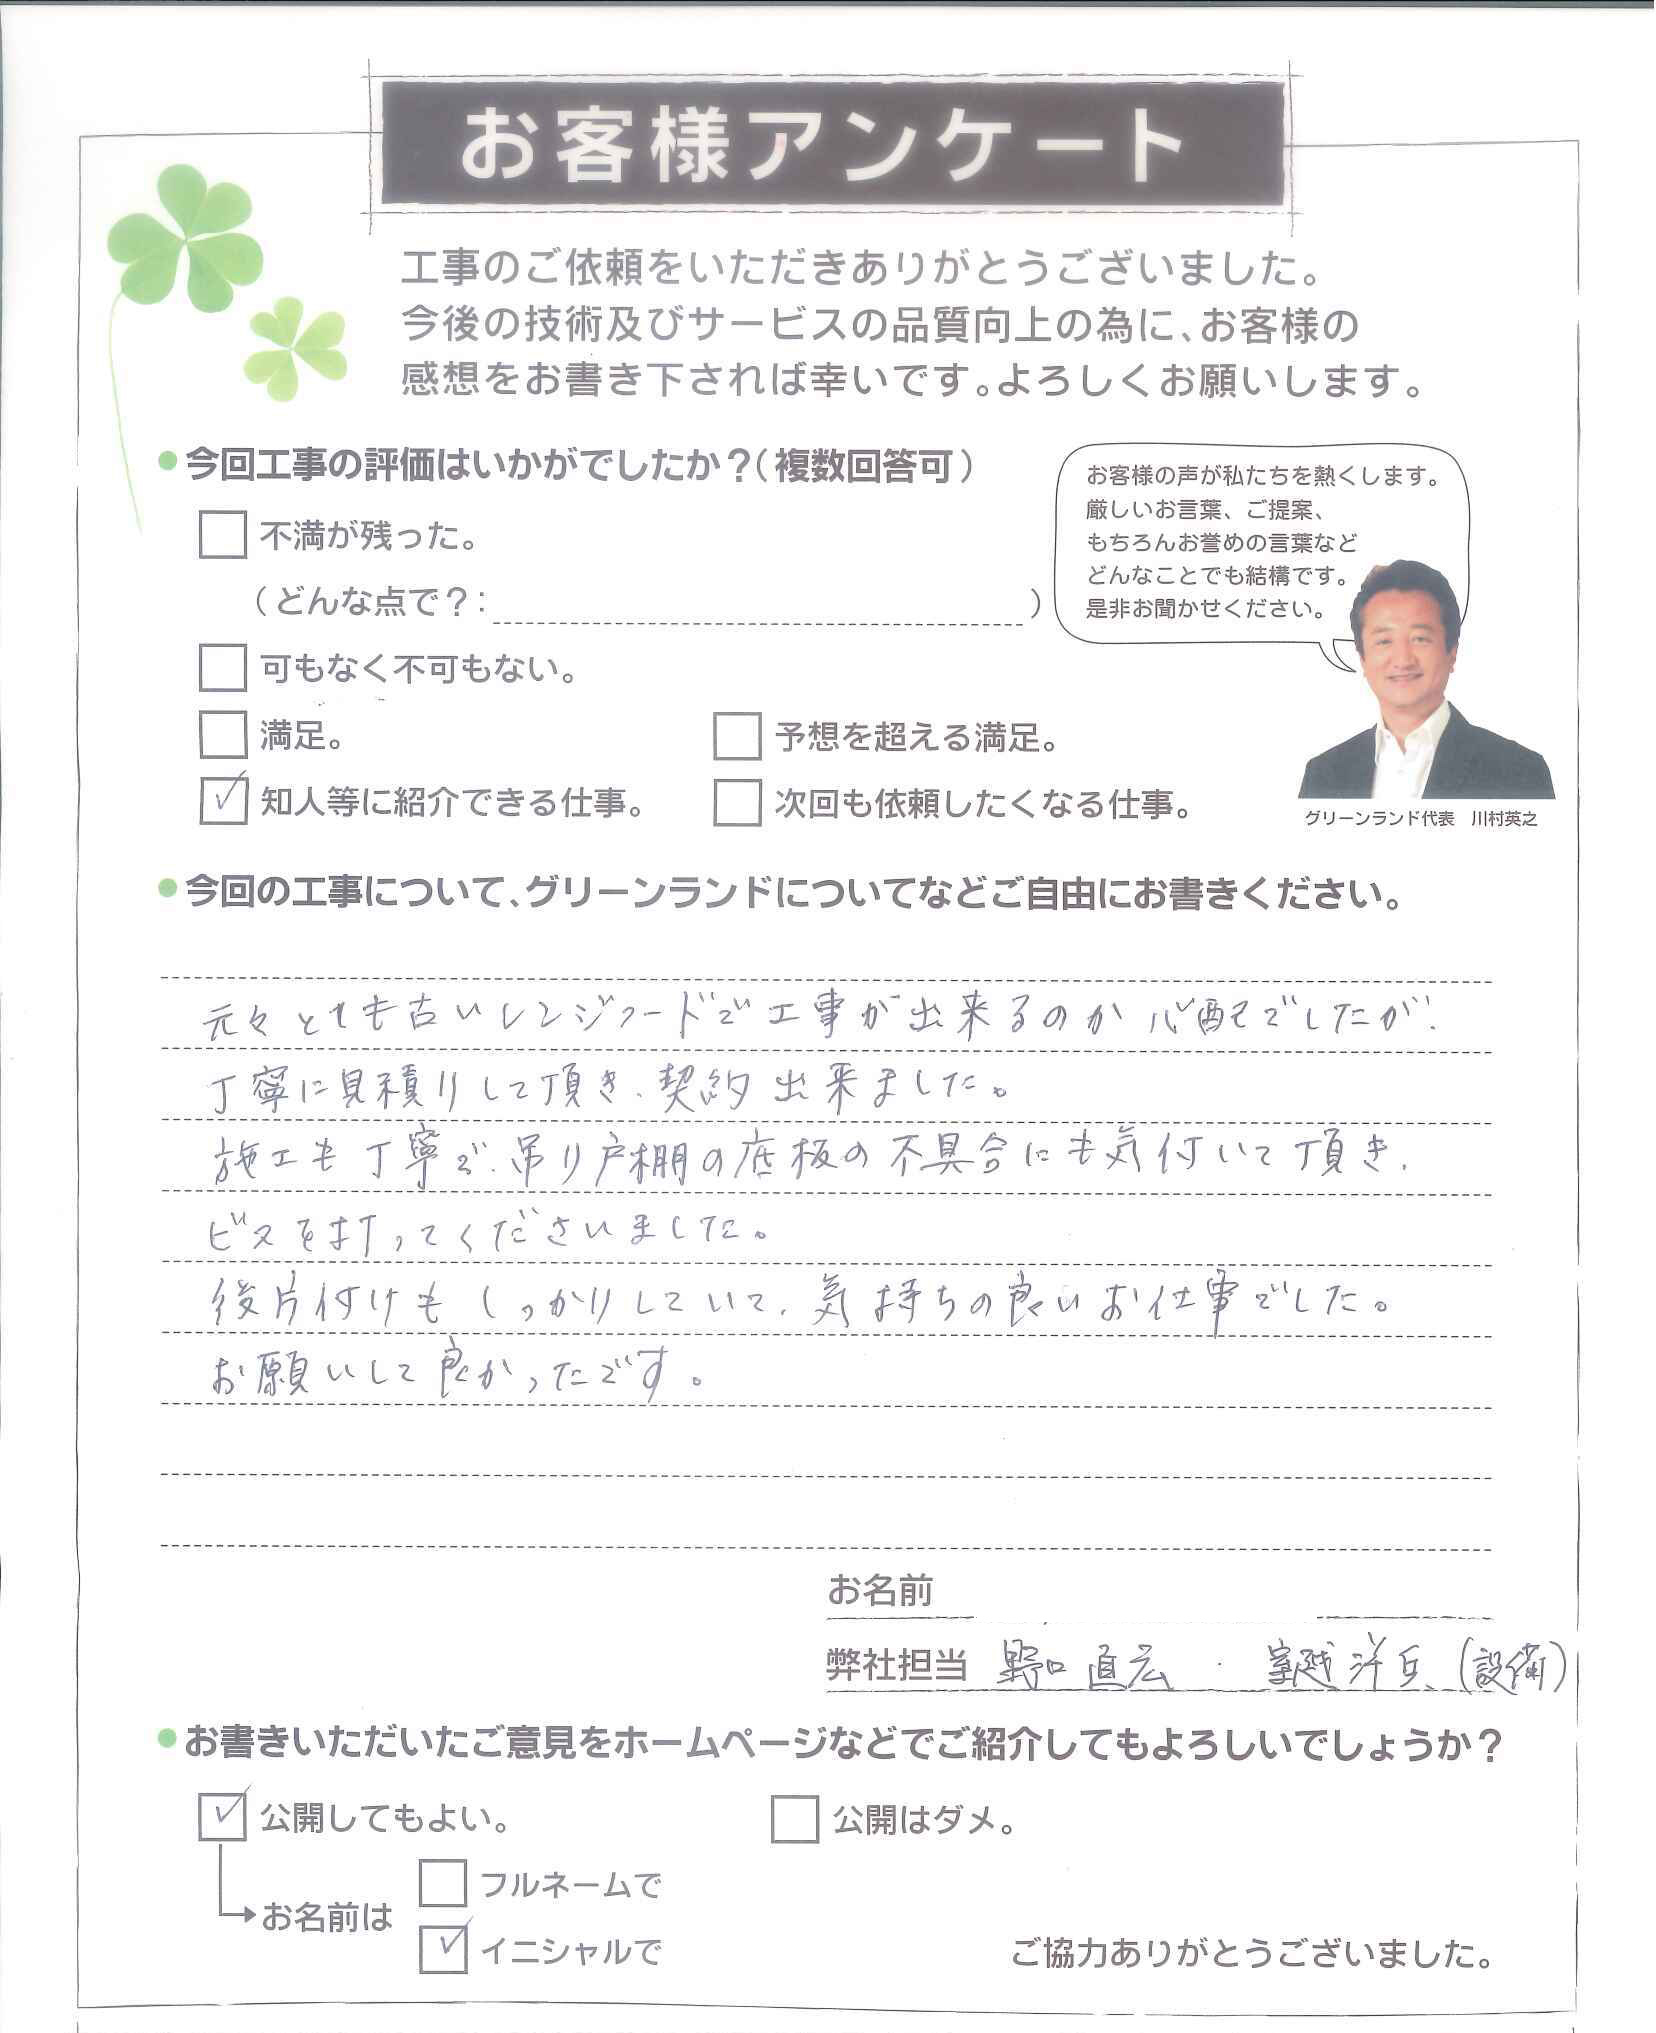 お客様アンケート
工事のご依頼をいただきありがとうございました。
今後の技術及びサービスの品質向上の為に、お客様の
感想をお書き下されば幸いです。よろしくお願いします。
●今回工事の評価はいかがでしたか?(複数回答可)
お客様の声が私たちを熱くします。
厳しいお言葉、ご提案、
もちろんお誉めの言葉など
どんなことでも結構です。
是非お聞かせください。
グリーンランド代表 川村英之
□ 不満が残った。
(どんな点で?: )
□ 可もなく不可もない。
□ 満足。 □ 予想を超える満足。
☑ 知人等に紹介できる仕事。 □ 次回も依頼したくなる仕事。
●今回の工事について、グリーンランドについてなどご自由にお書きください。
元々とても古いレンジフードで工事が出来るのか心配でしたが、
丁寧に見積りして頂き、契約出来ました。
施工も丁寧で、吊り戸棚の底板の不具合にも気付いて頂き、
ビスを打ってくださいました。
後片付けもしっかりしていて、気持ちの良いお仕事でした。
お願いして良かったです。
お名前
弊社担当 野口直広・室越洋兵(設備)
●お書きいただいたご意見をホームページなどでご紹介してもよろしいでしょうか?
☑ 公開してもよい。 □ 公開はダメ。
お名前は □ フルネームで
☑ イニシャルで
ご協力ありがとうございました。